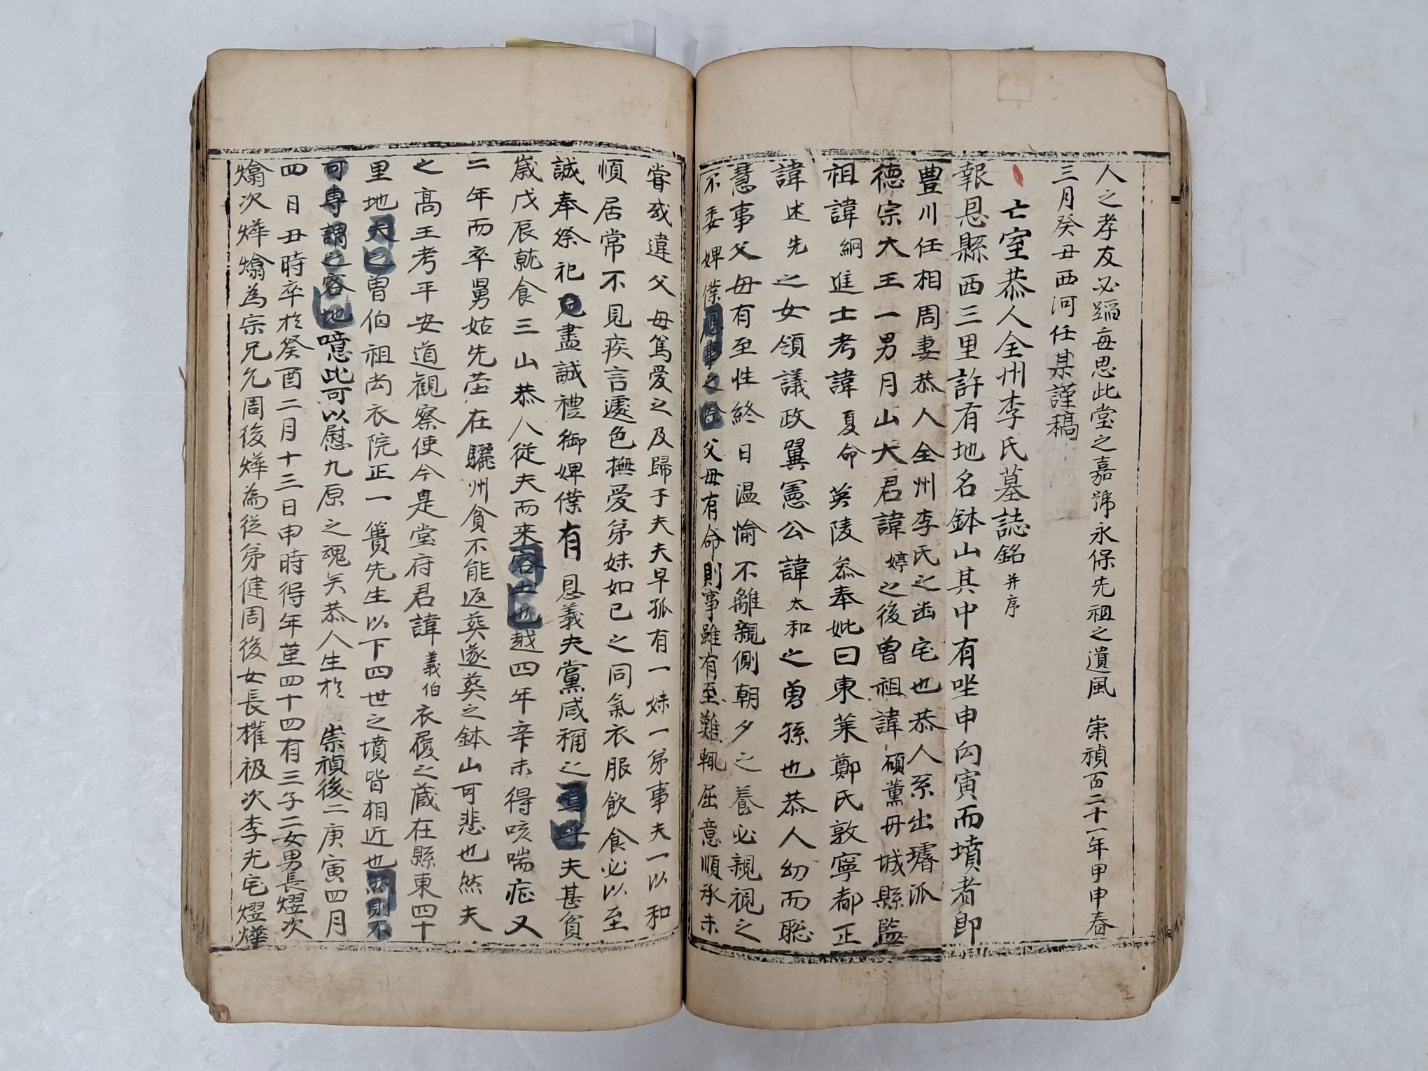 人之孝友必踰每思此堂之嘉號永保先祖之遺風 崇禎百二十一年甲申春
三月癸丑西河任某謹稿
亡室恭人全州李氏墓誌銘 并序
報恩縣西三里許有地名鉢山其中有坐申向寅而墳者即
豊川任相周妻恭人全州李氏之幽宅也恭人系出璿派
德宗大王一男月山大君諱婷之後曾祖諱碩薰丹城縣監
祖諱綱進士考諱夏命 英陵參奉妣曰東萊鄭氏敦寧都正
諱述先之女領議政翼憲公諱太和之曾孫也恭人幼而聡
慧事父母有至性終日温愉不離親側朝夕之養必親視之
不委婢僕 父母有命則事雖有至難輒屈意順承未
嘗或違父母篤愛之及歸于夫夫早孤有一妹一弟事夫一以和
順居常不見疾言遽色撫愛弟妹如己之同氣衣服飲食必以至
誠奉祭祀克盡誠禮御婢僕有恩義夫黨咸稱之 夫甚貧
歲戊辰就食三山恭人從夫而来 越四年辛未得咳喘症又
二年而卒舅姑先塋在驪州貧不能返葬遂葬之鉢山可悲也然夫
之高王考平安道觀察使今是堂府君諱義伯衣履之藏在縣東四十
里地 曾伯祖尚衣院正一簣先生以下四世之墳皆相近也然則不
可專謂之客地噫此可以慰九原之魂矣恭人生於 崇禎後二庚寅四月
四日丑時卒於癸酉二月十三日申時得年堇四十四有三子二女男長熤次
爚次燁爚為宗兄允周後燁為從弟健周後女長權 次李光宅熤